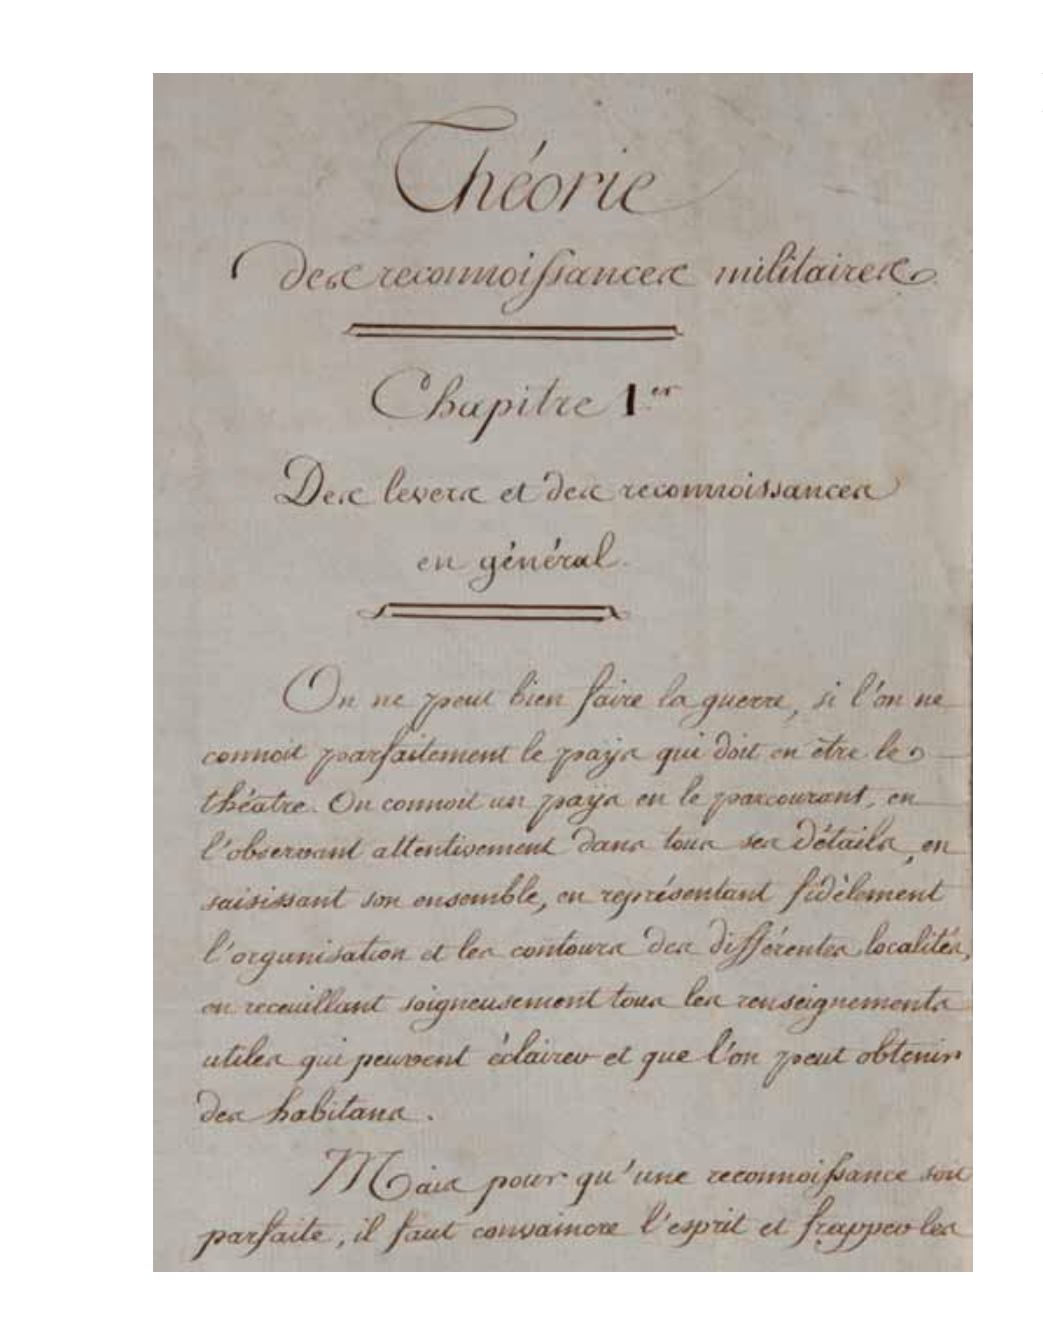 Théorie
des reconnoissances militaires
Chapitre 1.er
Des levers et des reconnoissances
en général.
On ne peut bien faire la guerre, si l'on ne
connoit parfaitement le pays qui doit en être le
théatre. On connoit un pays en le parcourant, en
l'observant attentivement dans tous ses détails, en
saisissant son ensemble, en représentant fidèlement
l'organisation et les contours des différentes localités,
en receuillant soigneusement tous les renseignements
utiles qui peuvent éclairer et que l'on peut obtenir
des habitans.
Mais pour qu'une reconnoissance soit
parfaite, il faut convaincre l'esprit et frapper les